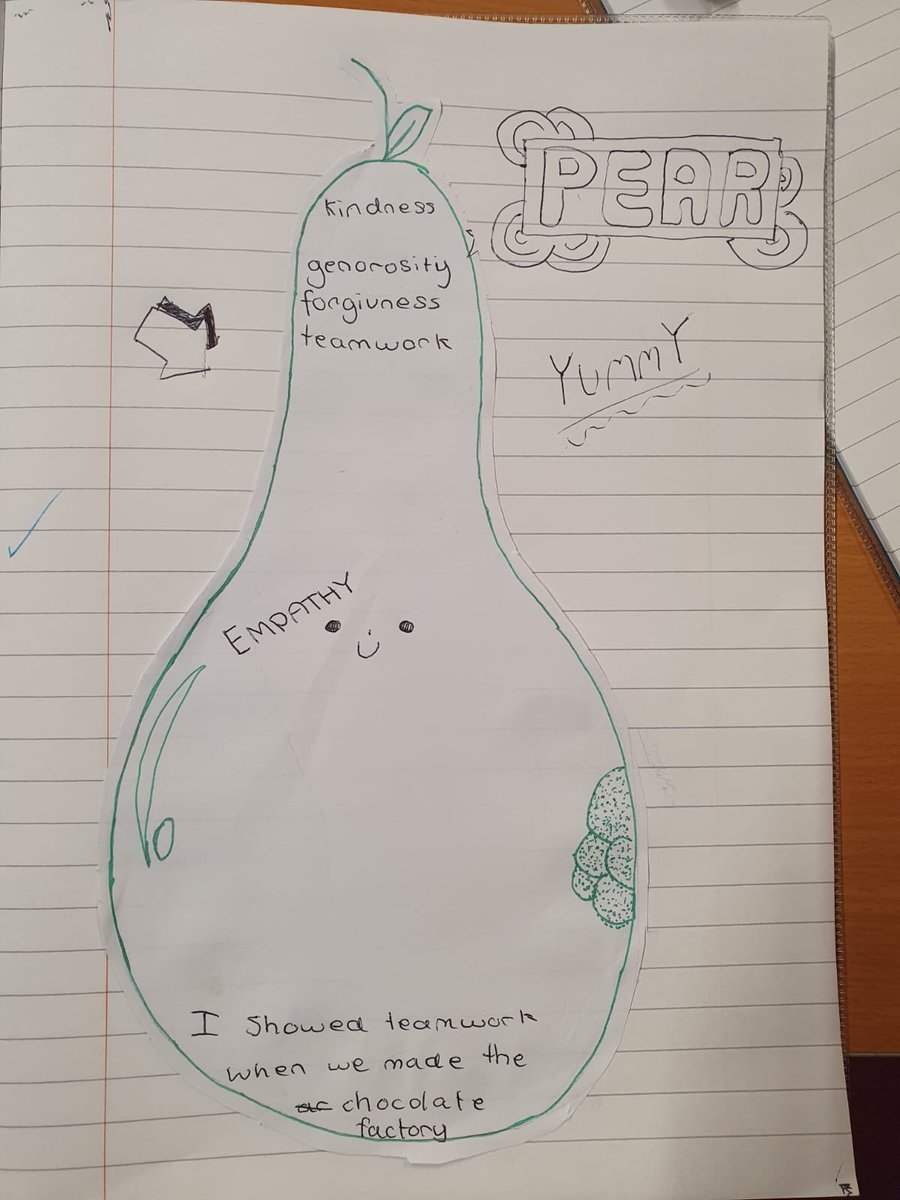 PEAR
kindness
genorosity
forgivness
teamwork
YUMMY
EMPATHY
I showed teamwork
when we made the
chocolate
factory